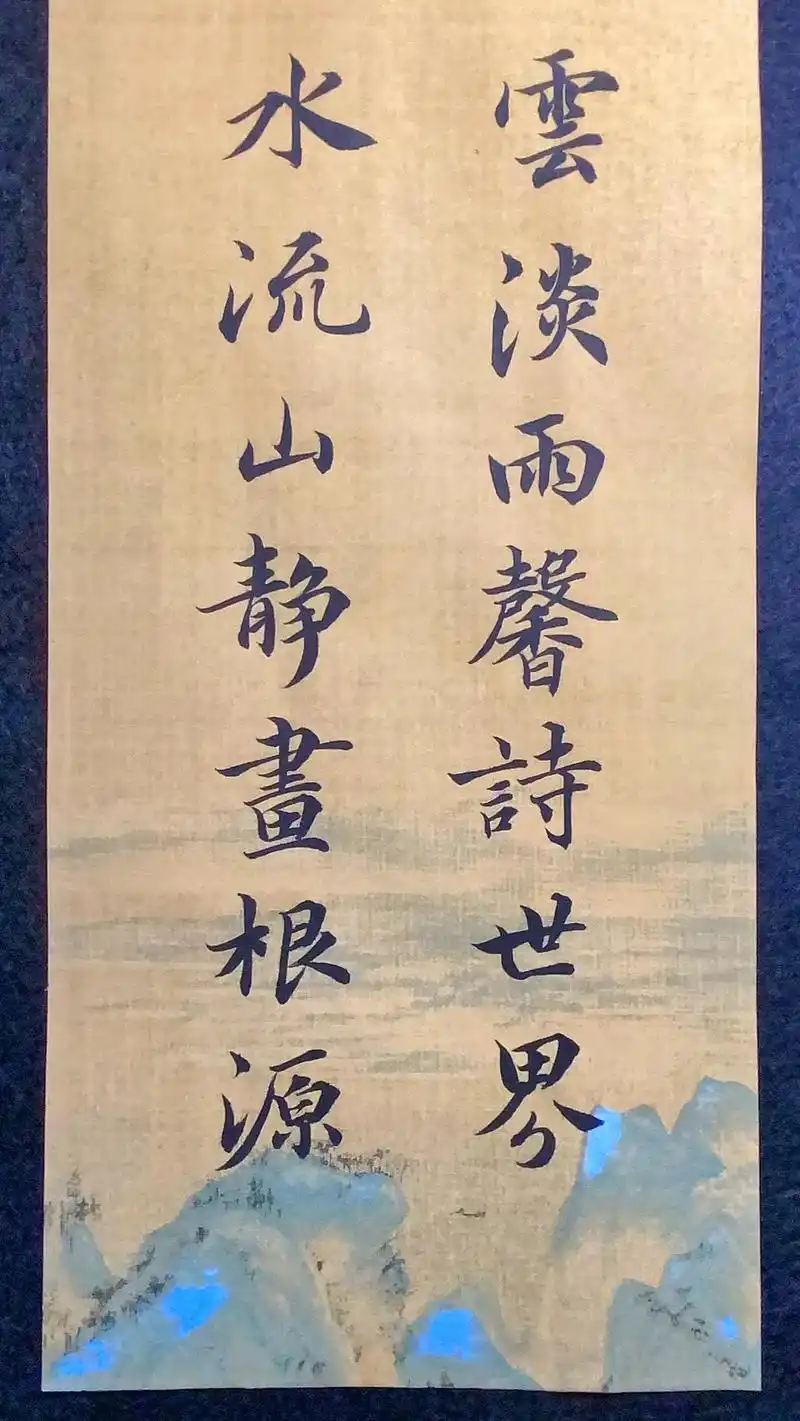 雲淡雨馨詩世界
水流山静畫根源